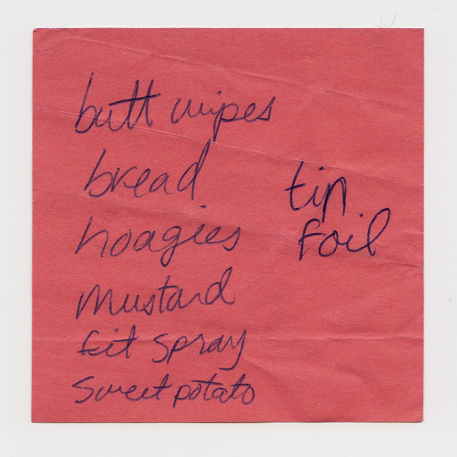 butt wipes
bread
hoagies
mustard
spray
sweet potato
tin
foil